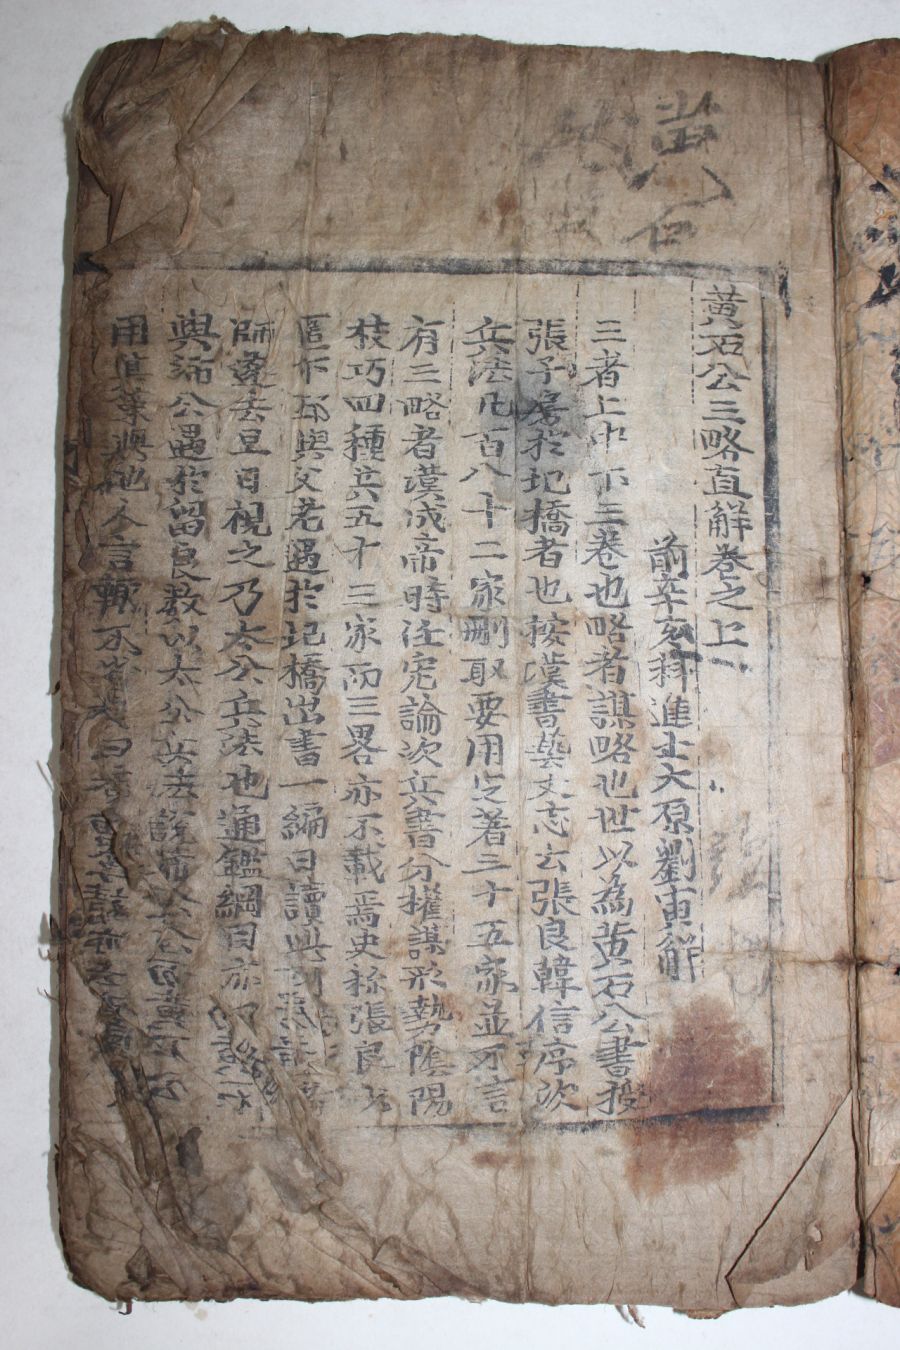 黃石
黃石公三略直解卷之上
前辛亥科進士太原劉寅解
三者上中下三卷也略者謀略也世以為黃石公書授
張子房於圯橋者也按漢書藝文志云張良韓信序次
兵法凡百八十二家刪取要用定著三十五家並不言
有三略者漢成帝時任宏論次兵書分權謀形勢陰陽
技巧四種共五十三家而三畧亦不載焉史稱張良少
匿下邳與父老遇於圯橋出書一編曰讀此則為
師遂去旦日視之乃太公兵法也通鑑綱目亦
與沛公遇於留良數以太公兵法說沛公公
用其策與他人言輒不省良曰